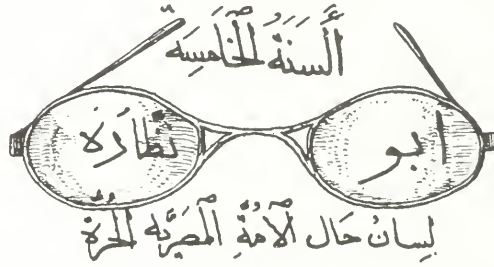 أَلسَنَةُ الخَامِسَه
ابو نظارَه
لِسانُ حَال الأمةِ المَصرِيَّه الحُرَّة